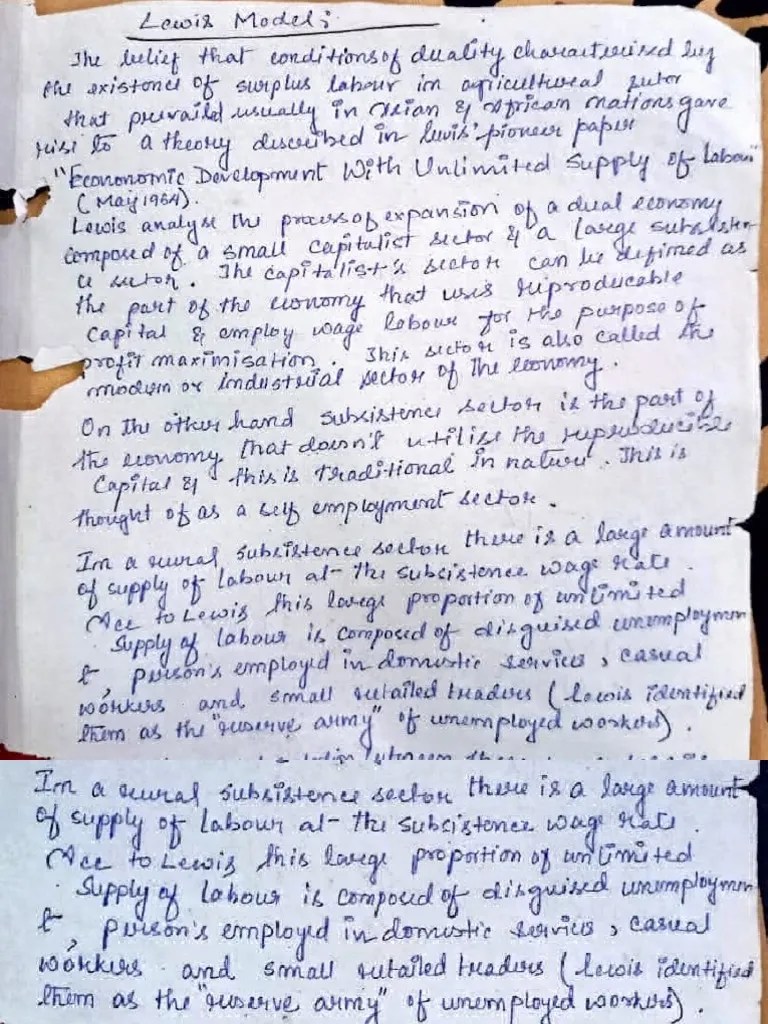 Lewis Model:
The belief that conditions of duality characterised by
the existence of surplus labour in agricultural sector
that prevaild usually in Asian & African nations gave
rise to a theory described in Lewis' pioneer paper
"Econonomic Development With Unlimited Supply of Labour"
(May 1954).
Lewis analyse the process of expansion of a dual economy
composed of a small capitalist sector & a large subsisten
ce sector. The capitalist's sector can be defined as
the part of the economy that uses reproducable
Capital & employ wage labour for the purpose of
profit maximisation. This sector is also called the
modern or industrial sector of the economy.
On the other hand subsistence sector is the part of
the economy that doesn't utilise the reproducible
Capital & this is traditional in nature. This is
thought of as a self employment sector.
In a rural subsistence sector there is a large amount
of supply of labour at the subsistence wage rate.
Acc to Lewis this large proportion of unlimited
Supply of labour is composed of disguised unemploymen
t, person's employed in domestic services, casual
workers and small retailed traders (lewis identified
them as the "reserve army" of unemployed workers).
between
In a rural subsistence sector there is a large amount
of supply of labour at the subsistence wage rate.
Acc to Lewis this large proportion of unlimited
Supply of labour is composed of disguised unemploymen
t, person's employed in domestic services, casual
workers and small retailed traders (lewis identified
them as the "reserve army" of unemployed workers).